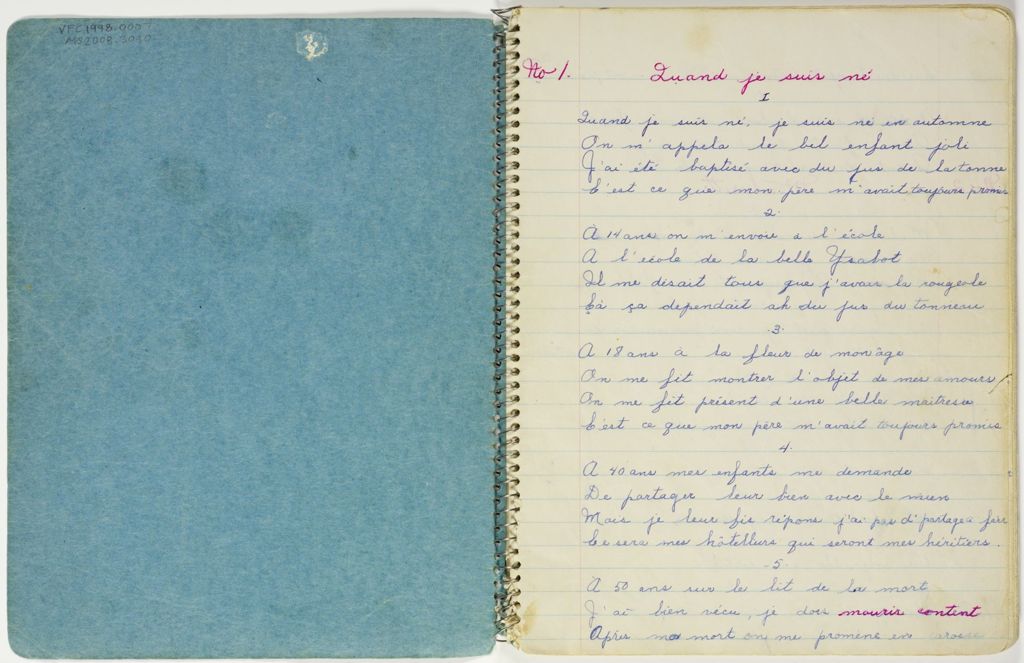 VFC1998.0007
MS2008.3090
No 1. Quand je suis né
I
Quand je suis né, je suis né en automne
On m'appela le bel enfant joli
J'ai été baptisé avec du jus de la tonne
C'est ce que mon père m'avait toujours promis
2
À 14 ans on m'envoie a l'école
A l'école de la belle Ysabot
Il me disait tous que j'avais la rougeole
Çà ça dependait ah du jus du tonneau
3
A 18 ans à la fleur de mon âge
On me fit montrer l'objet de mes amours
On me fit présent d'une belle maitresse
C'est ce que mon père m'avait toujours promis
4
A 40 ans mes enfants me demande
De partager leur bien avec le mien
Mais je leur fis répons j'ai pas d'partage a faire
Ce sera mes hôtelliers qui seront mes héritiers.
5
A 50 ans sur le lit de la mort
J'ai bien vécu, je dois mourir content
Après ma mort on me promène en carosse